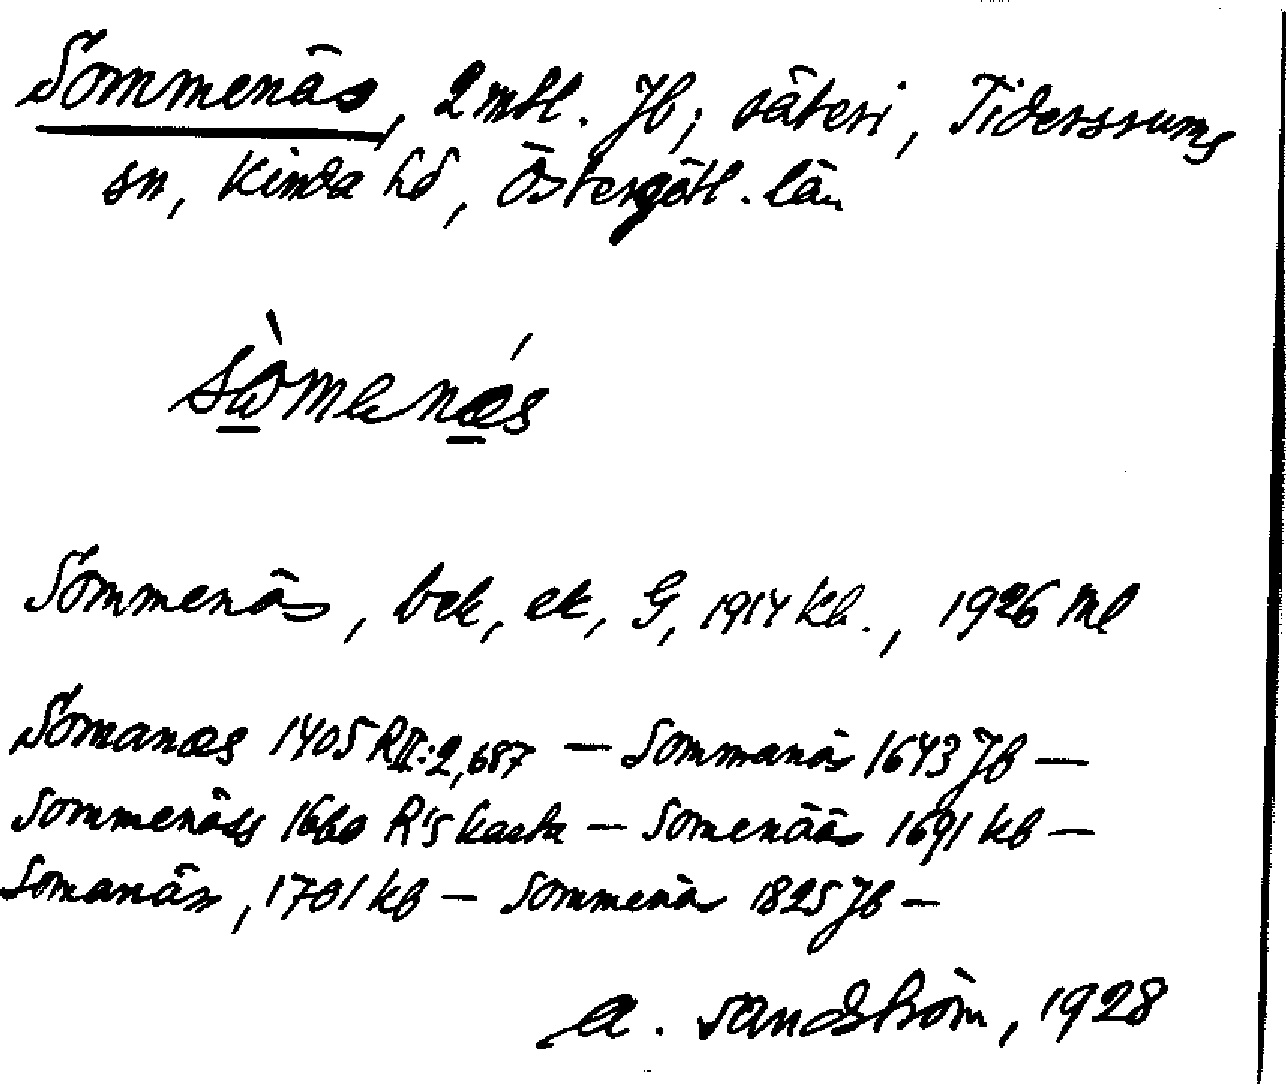 Sommenäs, 2 mtl. Jb; säteri, Tidersrums
sn, Kinda hd, Östergötl. län
Sommenäs, bek, ek, G, 1914 kb., 1926 Ml
Somanæs 1405 RII:2,687 — Sommanäs 1643 Jb —
Sommenääs 1660 R's karta — Somenääs 1691 kb —
Somanäs, 1701 kb — Sommenäs 1825 Jb —
A. Sandström, 1928